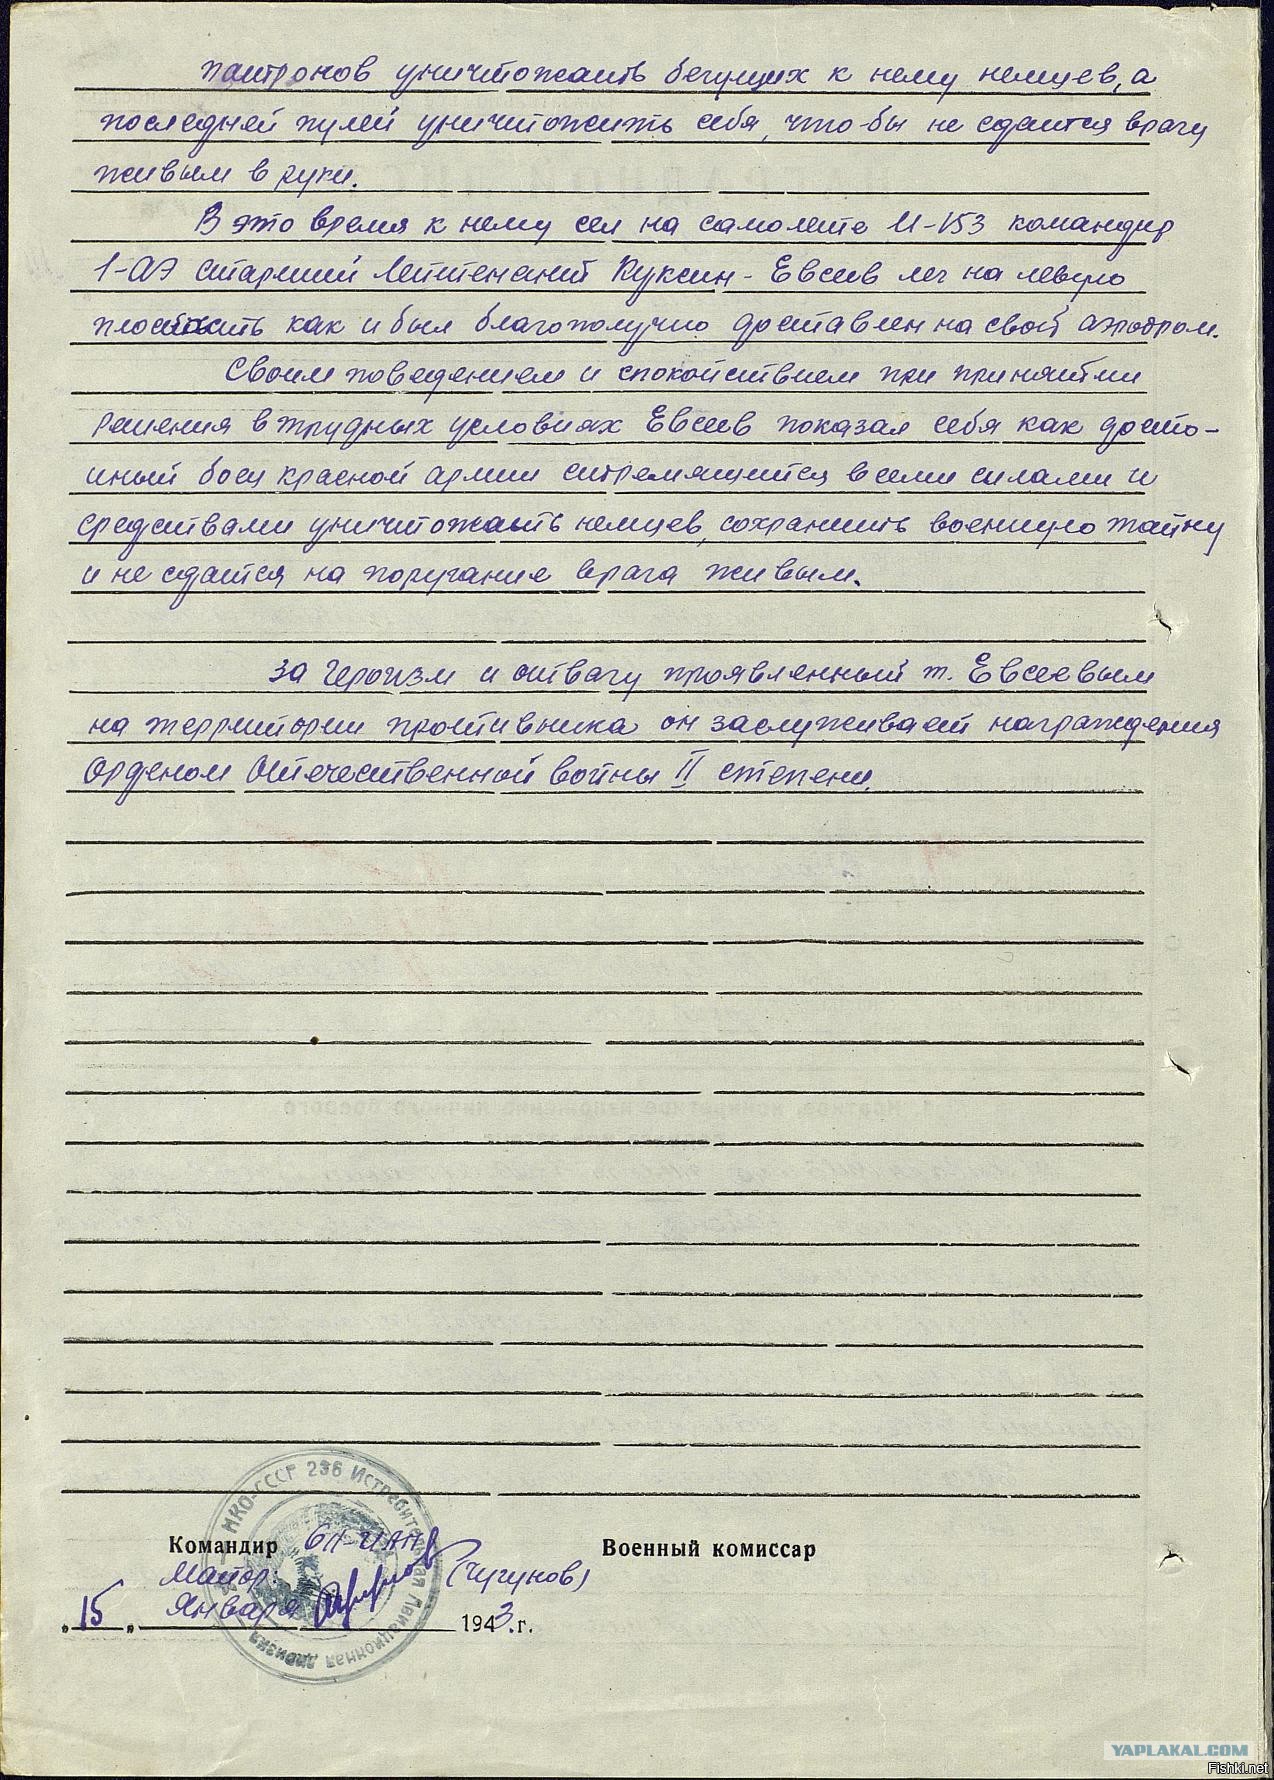 патронов уничтожать бегущих к нему немцев, а
последней пулей уничтожить себя, что-бы не сдаться врагу
живым в руки.
В это время к нему сел на самолете И-153 командир
1-АЭ старший Лейтенант Куксин - Евсеев лег на левую
плоскость как и был благополучно доставлен на свой аэродром.
Своим поведением и спокойствием при принятии
решения в трудных условиях Евсеев показал себя как досто-
иный боец красной армии стремящийся всеми силами и
средствами уничтожать немцев, сохранить военную тайну
и не сдаться на поругание врага живым.
За героизм и отвагу проявленный т. Евсеевым
на территории противника он заслуживает награждения
Орденом Отечественной войны II степени.
НКО-СССР 236 Истребительная Авиационная дивизия
Командир 611-ИАП
Военный комиссар
Майор: (Чугунов)
„15„ Января 1943. г.
YAPLAKAL.COM
Fishki.net